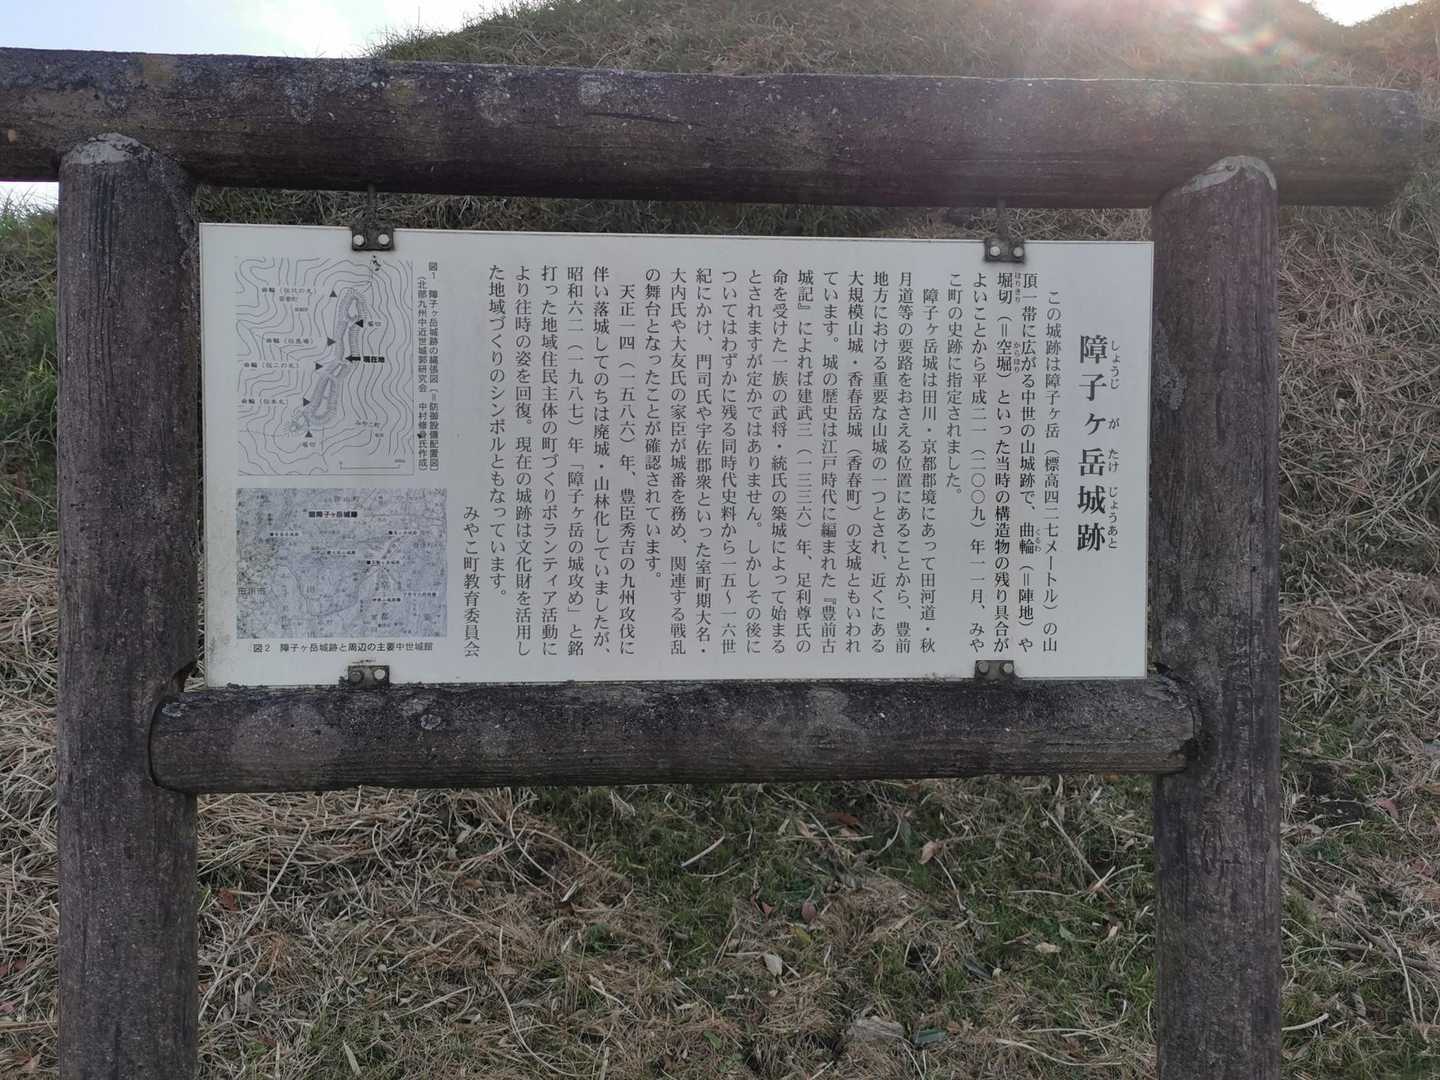 障子ヶ岳城跡
しょうじ が たけ じょうあと
この城跡は障子ヶ岳（標高四二七メートル）の山
頂一帯に広がる中世の山城跡で、曲輪（＝陣地）や
くるわ
堀切（＝空堀）といった当時の構造物の残り具合が
ほりきり からほり
よいことから平成二一（二〇〇九）年一一月、みや
こ町の史跡に指定されました。
障子ヶ岳城は田川・京都郡境にあって田河道・秋
月道等の要路をおさえる位置にあることから、豊前
地方における重要な山城の一つとされ、近くにある
大規模山城・香春岳城（香春町）の支城ともいわれ
ています。城の歴史は江戸時代に編まれた『豊前古
城記』によれば建武三（一三三六）年、足利尊氏の
命を受けた一族の武将・統氏の築城によって始まる
とされますが定かではありません。しかしその後に
ついてはわずかに残る同時代史料から一五～一六世
紀にかけ、門司氏や宇佐郡衆といった室町期大名・
大内氏や大友氏の家臣が城番を務め、関連する戦乱
の舞台となったことが確認されています。
天正一四（一五八六）年、豊臣秀吉の九州攻伐に
伴い落城してのちは廃城・山林化していましたが、
昭和六二（一九八七）年『障子ヶ岳の城攻め』と銘
打った地域住民主体の町づくりボランティア活動に
より往時の姿を回復。現在の城跡は文化財を活用し
た地域づくりのシンボルともなっています。
みやこ町教育委員会
図1 障子ヶ岳城跡の縄張図（＝防御設備配置図）
（北部九州中近世城郭研究会 中村修身氏作成）
堀切
現在地
堀切
図2 障子ヶ岳城跡と周辺の主要中世城館
障子ヶ岳城
田川市